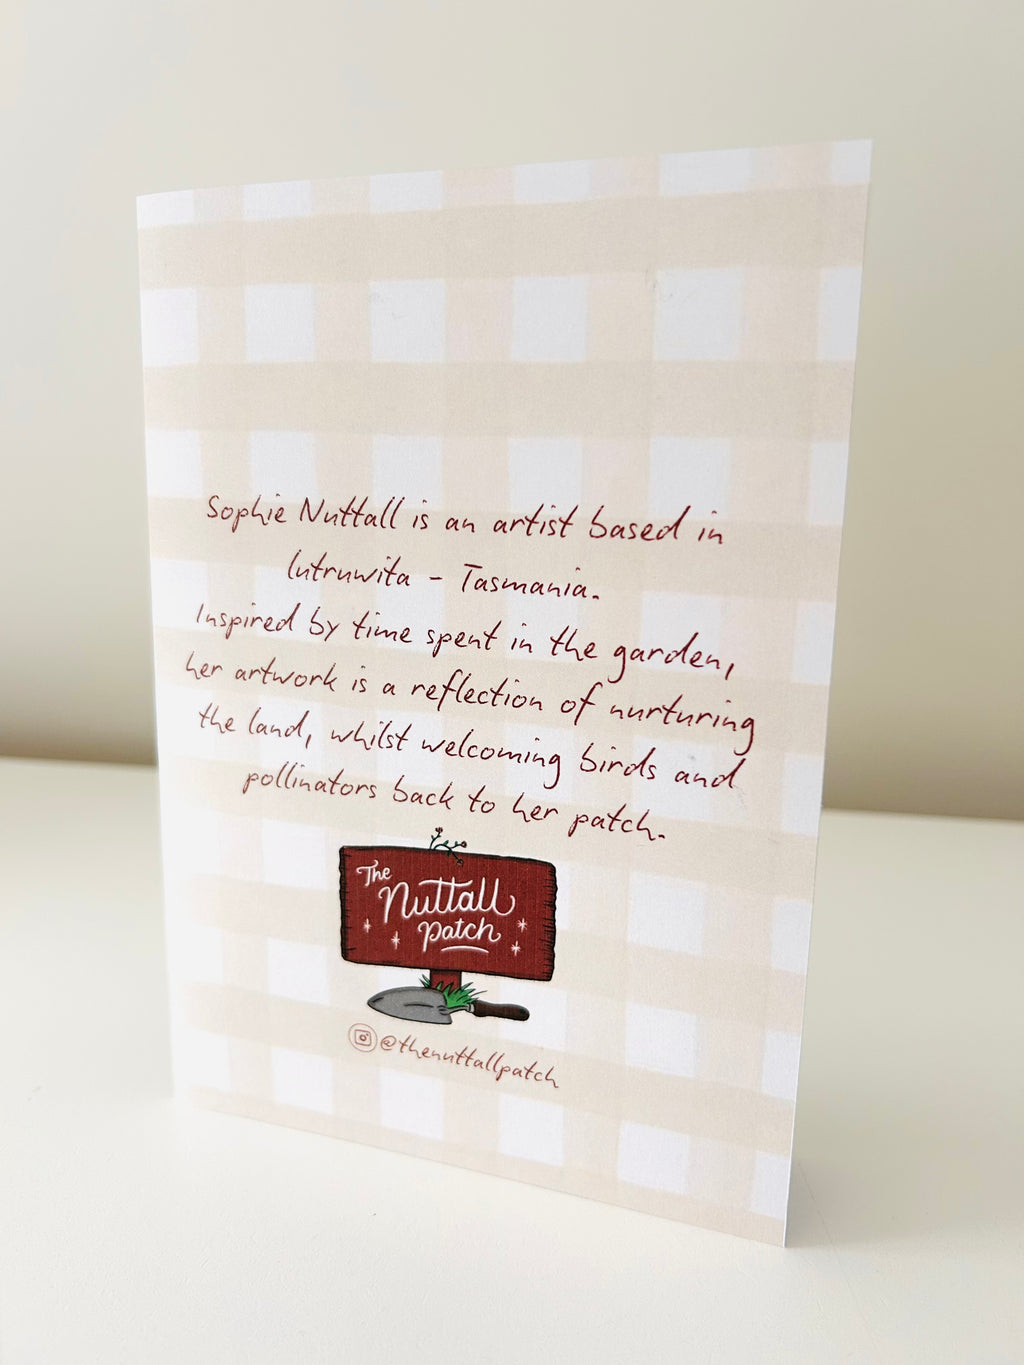 Sophie Nuttall is an artist based in
lutruwita - Tasmania.
Inspired by time spent in the garden,
her artwork is a reflection of nurturing
the land, whilst welcoming birds and
pollinators back to her patch.
The
Nuttall
Patch
@thenuttallpatch